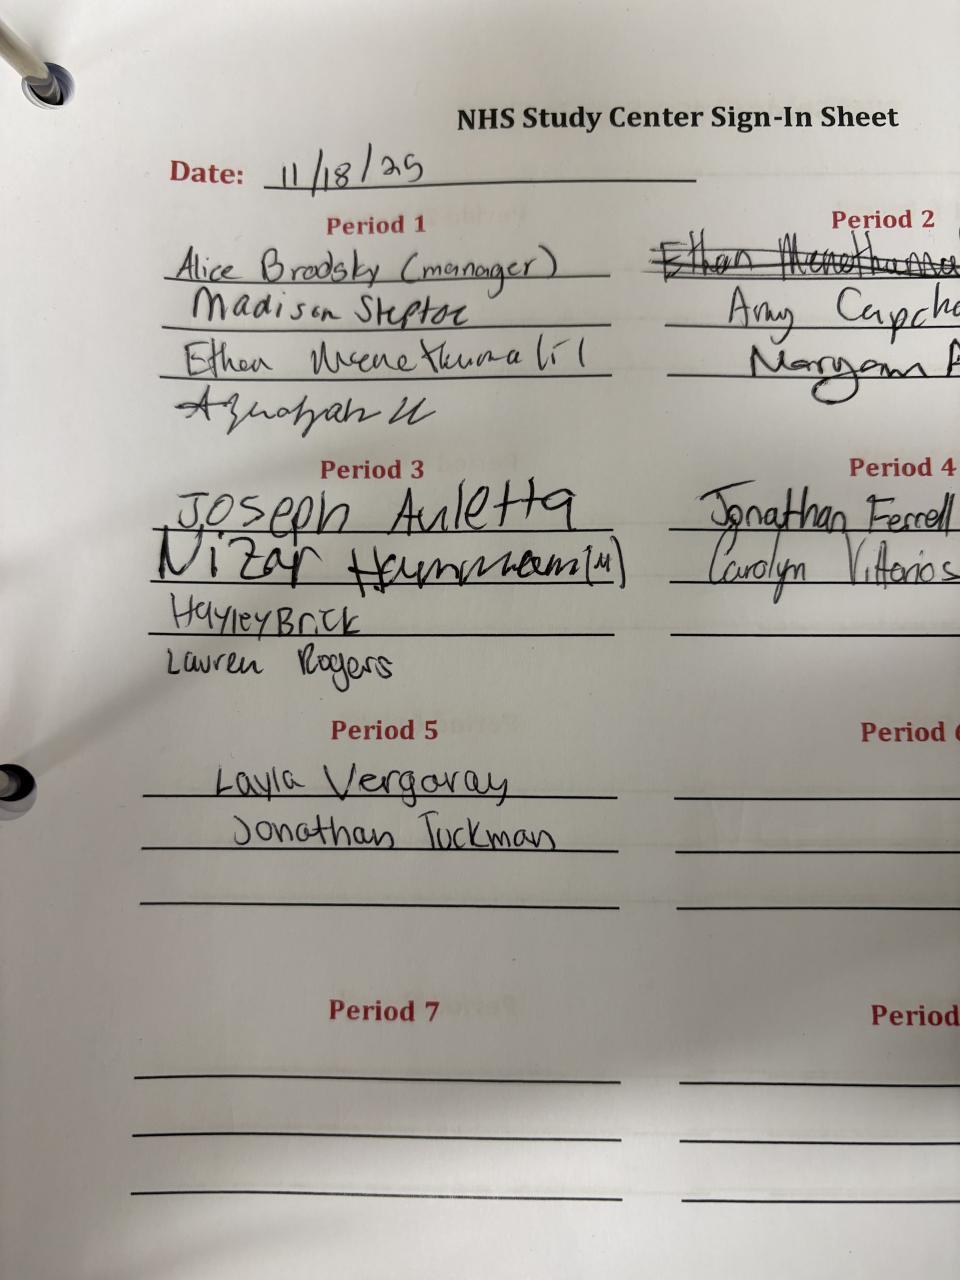 NHS Study Center Sign-In Sheet
Date: 11/18/25
Period 1
Alice Brodsky (manager)
Madison Steptoe
Ethan
Period 2
Ethan
Amy Capcho
Maryam A
Period 3
Joseph Auletta
Nizar Hammami (M)
Hayley Brick
Lauren Rogers
Period 4
Jonathan Ferrell
Carolyn Vittorios
Period 5
Layla Vergaray
Jonathan Tuckman
Period 6
Period 7
Period